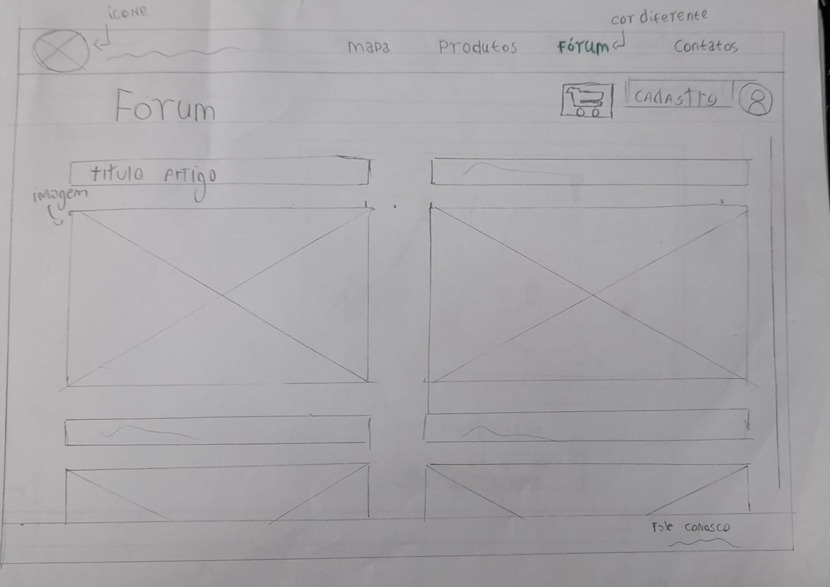 ícone
cor diferente
mapa Produtos Fórum Contatos
Fórum
CADASTRO
título Artigo
imagem
Fale conosco